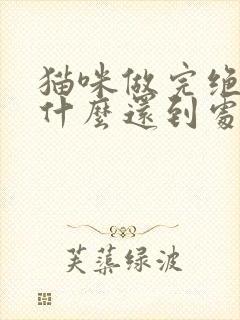 猫咪做完绝
什麼還到處
芙蕖绿波